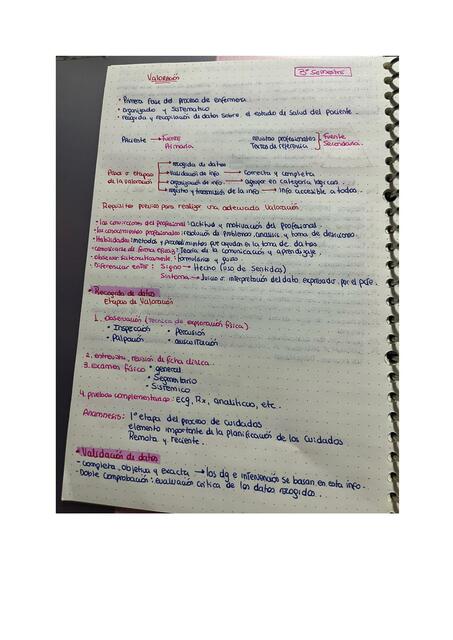 Valoración
3º semestre
• Primera fase del proceso de enfermería
• organizado y sistemático
• recogida y recopilación de datos sobre el estado de salud del paciente.
Paciente → Fuente Primaria
revistas profesionales
Textos de referencia
Fuente Secundaria.
Fases o etapas de la valoración
→ recogida de datos
→ Validación de info → Correcta y completa
→ organización de info → agrupar en categorías lógicas.
→ registro y transmisión de la info → Info accesible a todos.
Requisitos previos para realizar una adecuada valoración
- las convicciones del profesional: actitud y motivación del profesional.
- los conocimientos profesionales: resolución de problemas, análisis y toma de decisiones.
- Habilidades: métodos y procedimientos que ayudan en la toma de datos
- comunicarse de forma eficaz: Teoría de la comunicación y aprendizaje.
- observar sistemáticamente: formularios y guías
- Diferenciar entre: Signo → Hecho (uso de sentidos)
Síntoma → Juicio o interpretación del dato expresado por el pcte.
• Recogida de datos
Etapas de valoración
1. observación (Técnica de exploración física)
• Inspección • Percusión
• Palpación • auscultación
2. entrevista, revisión de ficha clínica.
3. examen físico • general
• Segmentario
• Sistémico
4. pruebas complementarias: ecg, Rx, analíticas, etc.
Anamnesis: 1º etapa del proceso de cuidados
elemento importante de la planificación de los cuidados
Remota y reciente.
• Validación de datos
- completa, objetiva y exacta → los dg e intervención se basan en esta info.
- Doble comprobación: evaluación crítica de los datos recogidos.